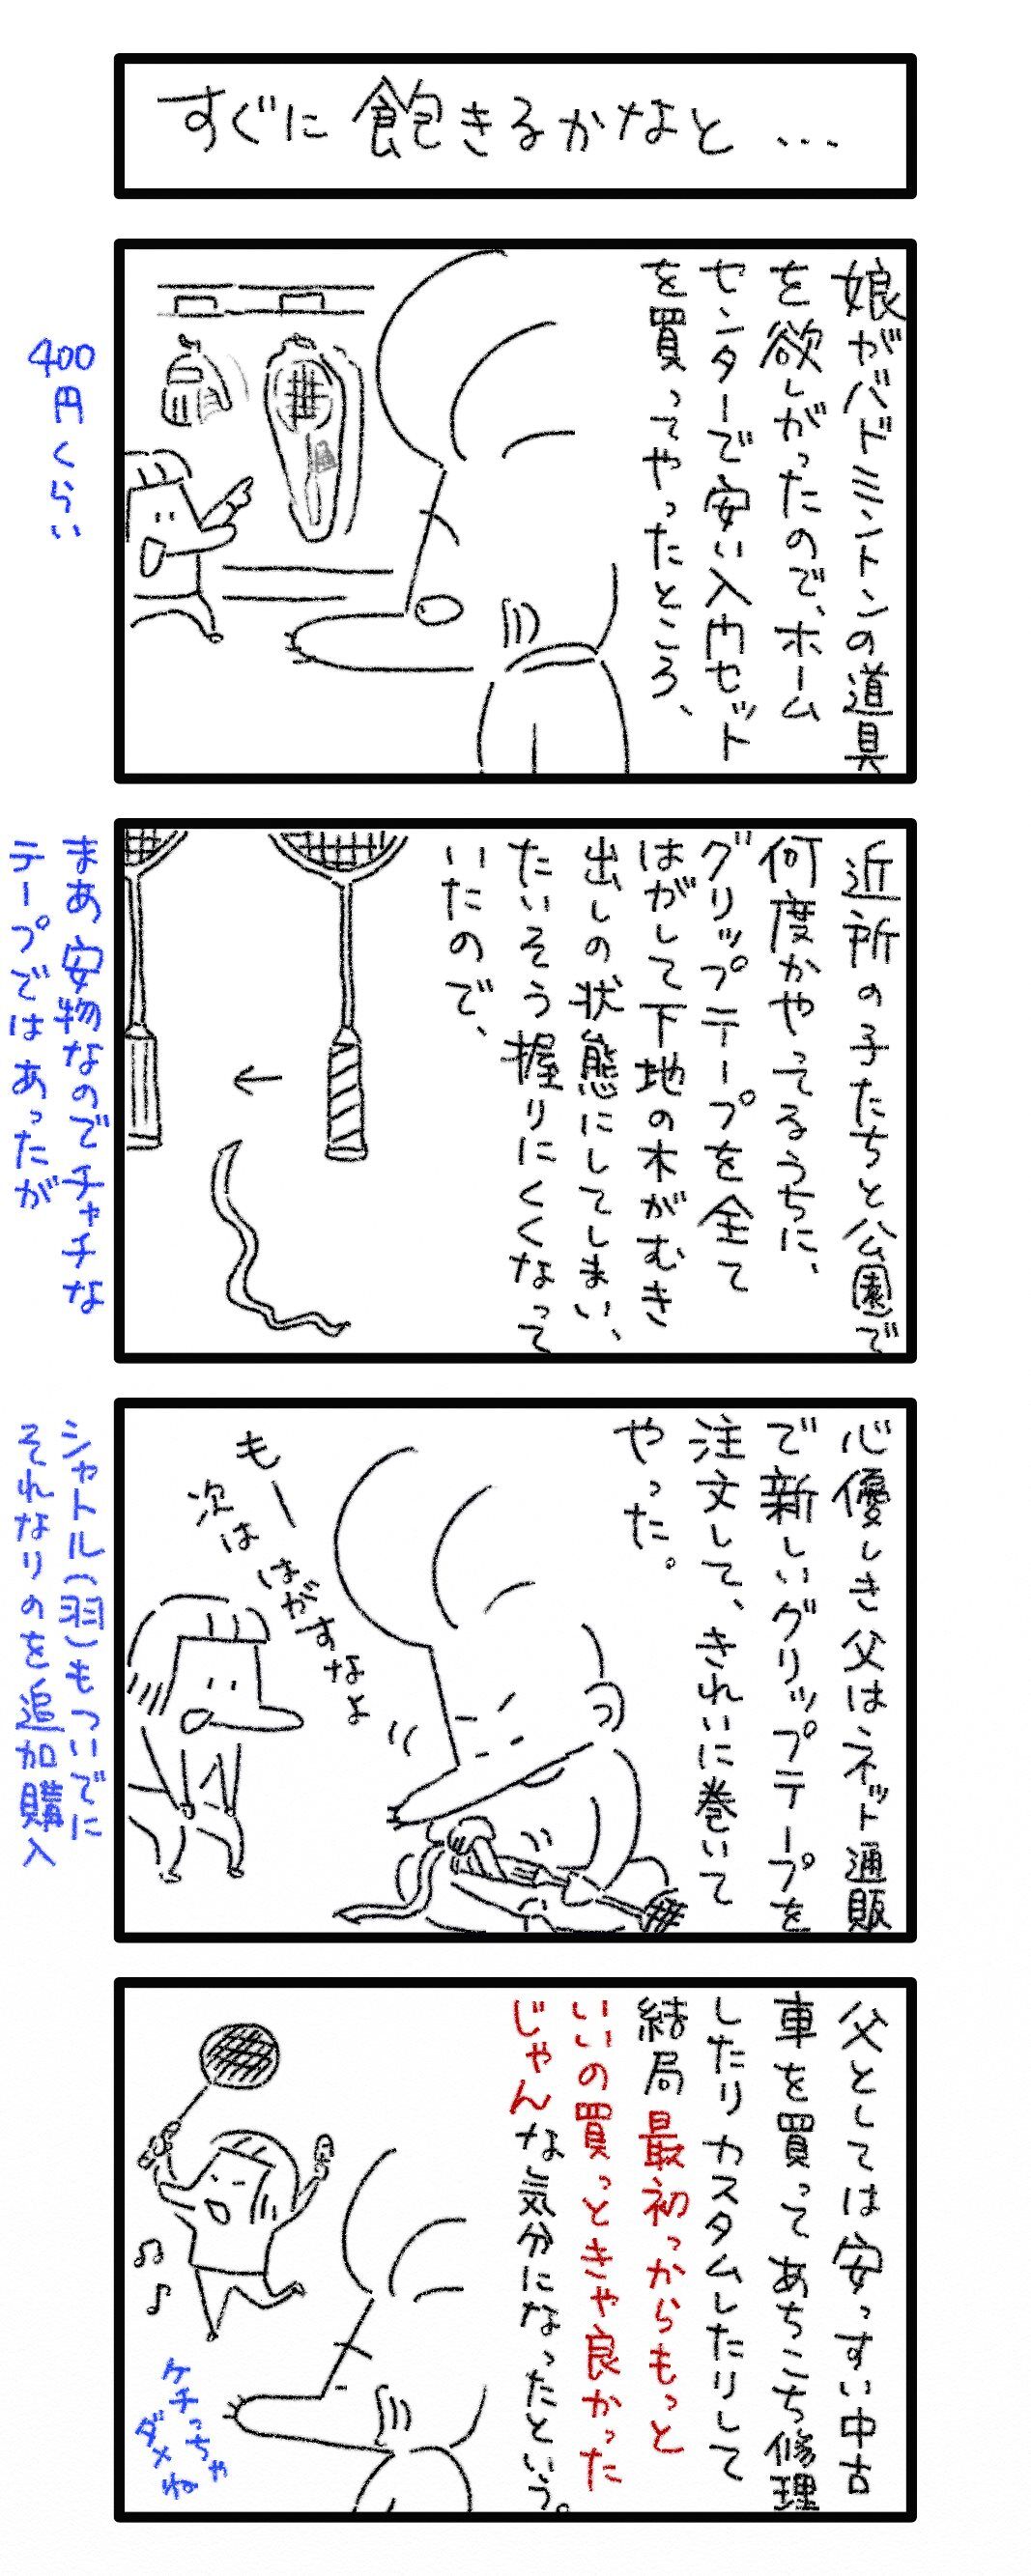 すぐに飽きるかなと...
娘がバドミントンの道具
を欲しがったので、ホーム
センターで安い入門セット
を買ってやったところ、
400円くらい
近所の子たちと公園で
何度かやってるうちに、
グリップテープを全て
はがして下地の木がむき
出しの状態にしてしまい、
たいそう握りにくくなって
いたので、
まあ安物なのでチャチな
テープではあったが
心優しき父はネット通販
で新しいグリップテープを
注文して、きれいに巻いて
やった。
もー
次ははがすなよ
シャトル(羽)もついでに
それなりのを追加購入
父としては安っすい中古
車を買ってあちこち修理
したりカスタムしたりして
結局最初っからもっと
いいの買っときゃ良かった
じゃんな気分になったという。
ケチっちゃ
ダメね